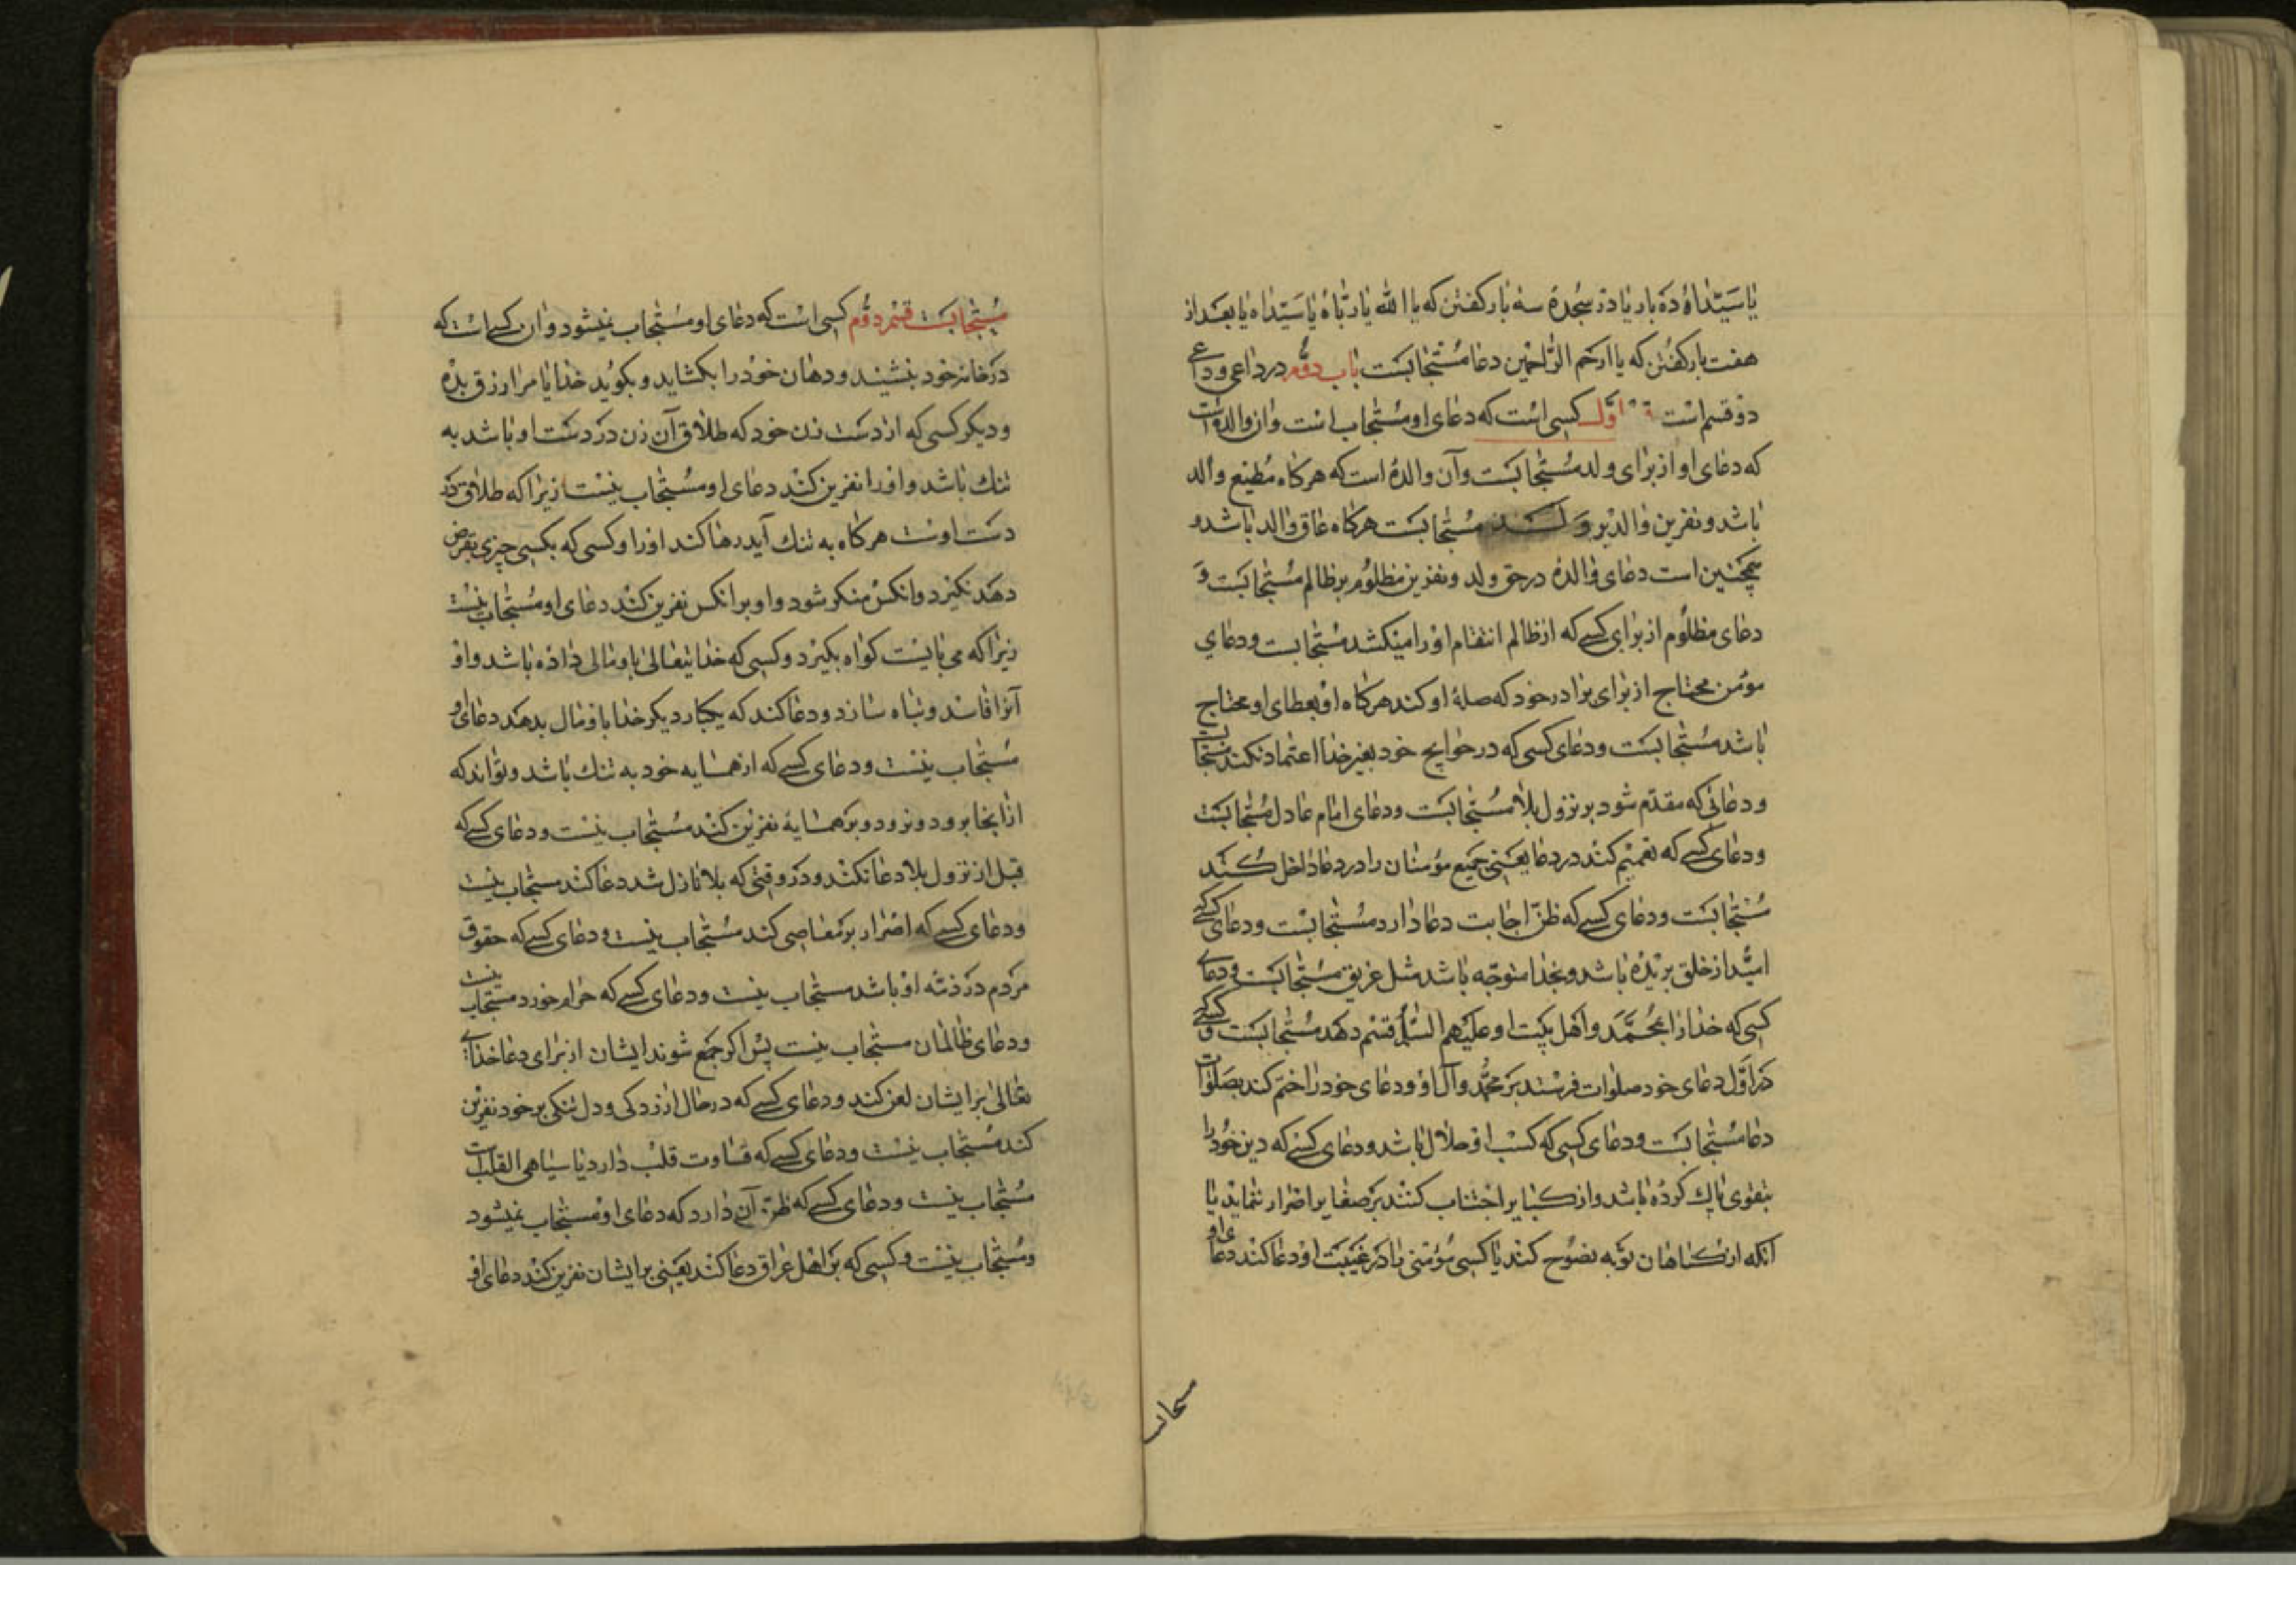 یا سیّداه ده بار یا در سجده سه بار کفتن که یا الله یا ربّاه یا سیّداه یا بعد از
هفت بار کفتن که یا ارحم الرّاحمین دعا مستجابست باب دوّم در داعی و داعی
دو قسم است اوّل کسی است که دعای او مستجاب است وان والد است
که دعای او از برای ولد مستجابست وآن والده است که هرکاه مطیع والد
باشد و نفرین والد بر ولد مستجابست هرکاه عاق والد باشد و
همچنین است دعای والده در حق ولد و نفرین مظلوم بر ظالم مستجابست و
دعای مظلوم از برای کسی که از ظالم انتقام او را میکشد مستجابست و دعای
مؤمن محتاج از برای برادر خود که صلهٔ او کند هرکاه او بعطای او محتاج
باشد مستجابست و دعای کسی که در حوایج خود بغیر خدا اعتماد نکند مستجابست
و دعائی که مقدّم شود بر نزول بلا مستجابست و دعای امام عادل مستجابست
و دعای کسی که تعمیم کند در دعا یعنی جمیع مؤمنان را در دعا داخل کند
مستجابست و دعای کسی که ظنّ اجابت دعا دارد مستجابست و دعای کسی که
امید از خلق بریده باشد و بخدا متوجّه باشد مثل غریق مستجابست و دعای
کسی که خدا را بمحمّد و اهل بیت او علیهم السّلام قسم دهد مستجابست و کسی که
در اوّل دعای خود صلوات فرستد بر محمّد وآل او و دعای خود را ختم کند بصلوات
دعا مستجابست و دعای کسی که کسب او حلال باشد و دعای کسی که دین خود را
بتقوی پاک کرده باشد و از کبایر اجتناب کند بر صغایر اصرار ننماید یا
آنکه از کناهان توبه نصوح کند یا کسی مؤمنی را در غیبت او دعا کند دعای او
مستجابست قسم دوّم کسی است که دعای او مستجاب نمیشود و ان کسی است که
در خانه خود بنشیند و دهان خود را بکشاید و بکوید خدایا مرا رزق بده
و دیکر کسی که از دست زن خود که طلاق آن زن در دست او باشد به
تنك باشد و او را نفرین کند دعای او مستجاب نیست زیرا که طلاق در
دست اوست هرکاه به تنك آید رها کند او را و کسی که بکسی چیزی بقرض
دهد نکیرد وانکس منکر شود و او بر انکس نفرین کند دعای او مستجاب نیست
زیرا که می بایست کواه بکیرد و کسی که خدایتعالی باو مالی داده باشد و او
آنرا فاسد و تباه سازد و دعا کند که یکبار دیکر خدا باو مال بدهد دعای او
مستجاب نیست و دعای کسی که از همسایه خود به تنك باشد و تواند که
از انجا برود و نرود و بر همسایهٔ نفرین کند مستجاب نیست و دعای کسی که
قبل از نزول بلا دعا نکند و در وقتی که بلا نازل شد دعا کند مستجاب نیست
و دعای کسی که اصرار بر معاصی کند مستجاب نیست و دعای کسی که حقوق
مردم در ذمّه او باشد مستجاب نیست و دعای کسی که حرام خورد مستجاب نیست
و دعای ظالمان مستجاب نیست پس اکر جمع شوند ایشان از برای دعا خدای
تعالی بر ایشان لعن کند و دعای کسی که در حال ازردکی و دل تنکی بر خود نفرین
کند مستجاب نیست و دعای کسی که قساوت قلب دارد یا سیاهی القلب است
مستجاب نیست و دعای کسی که ظنّ آن دارد که دعای او مستجاب نمیشود
و مستجاب نیست و کسی که بر اهل عراق دعا کند یعنی بر ایشان نفرین کند دعای او